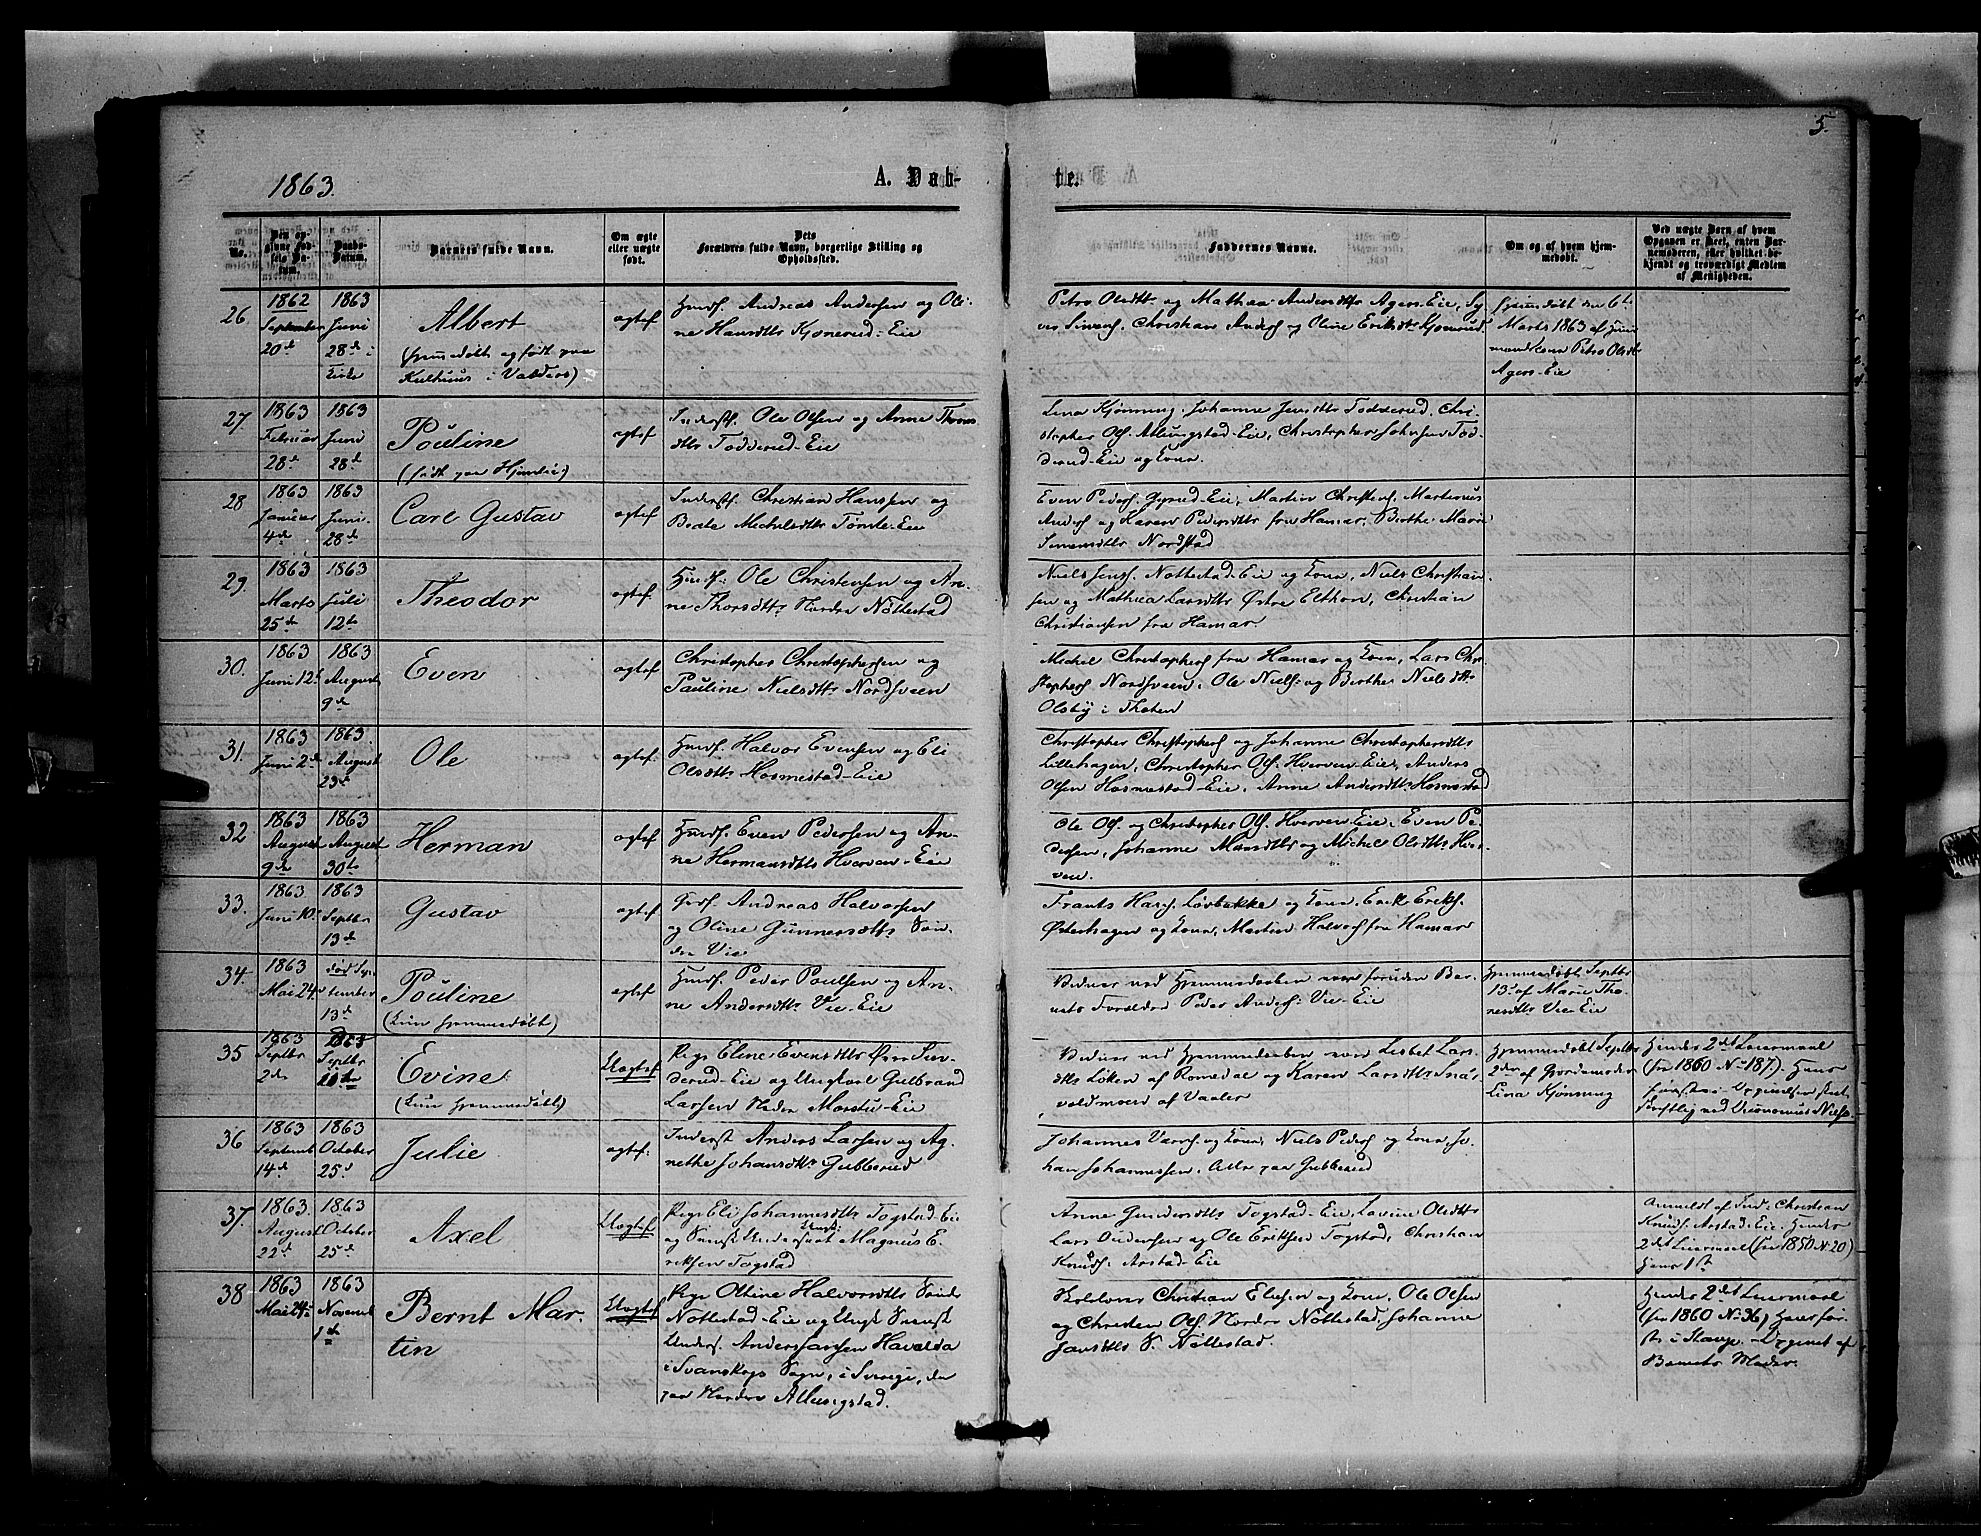 5.
1863.
A. Døb-
te.
No.
Den opgivne Fødsels Datum.
Daabs-Datum.
Barnets fulde Navn.
Om ægte eller uægte født.
Dets Forældres fulde Navn, borgerlige Stilling og Opholdssted.
Faddernes Navne.
Om og af hvem hjemmedøbt.
Ved uægte Børn af hvem Opgaven er skeet, enten Barnemoderen, eller hvilket bekjendt og troværdigt Medlem af Menigheden.
26
1862
September
20de
1863
Juni
28de i
Kirke
Albert
(hjemmedøbt og født paa
i Valders)
ægtef.
Huusf. Andreas Andersen og Oli-
ne Hansdttr Kjonerud-Eie
Petra Olsdttr og Mathea Andersdttr Agers-Eie, Sy-
ver Simens. Christian Anders. og Oline Eriksdttr Kjonerud
Hjemdøbt den 6te
Marts 1863 af Huus-
mandskone Petra Olsdtr
Agers-Eie
27.
1863
Februar
28de
1863
Juni
28de
Pouline
(født paa
ægtef.
Inderst. Ole Olsen og Anne Thores
dttr Todderud-Eie
Lina Kjønning, Johanne Jensdttr Todderud, Chri-
stopher Ols. Atlungstad-Eie, Christopher Johnsen Tod-
derud-Eie og Kone.
28
1863
Januar
4de
1863
Juni.
28de
Carl Gustav
ægtef.
Inderst. Christian Hansen og
Beate Michelsdttr Tomte-Eie
Even Peders. Gyrud-Eie, Martin Christens. Martinus
Anders. og Karen Pedersdttr fra Hamar, Berthe Marie
Simensdttr Nordstad
29.
1863
Marts
25de
1863
Juli
12te
Theodor
ægtef.
Huusf. Ole Christensen og An-
ne Thorsdttr Nordre Nøttestad
Niels Jens. Nøttestad-Eie og Kone, Niels Christian-
sen og Mathea Larsdttr Østre Elthon, Christian
Christiansen fra Hamar.
30.
1863
Juni 12te
1863
August
9de
Even
ægtef.
Christopher Christophersen og
Pauline Nielsdttr Nordsveen
Michel Christophers. fra Hamar og Kone, Lars Chri-
stophers. Nordsveen, Ole Niels. og Berthe Nielsdttr
Olsby i Thoten
31.
1863
Juni 2de
1863.
August
23de
Ole
ægtef.
Huusf. Halvor Evensen og Eli
Olsdttr Hosmestad-Eie
Christopher Christophers. og Johanne Christophersdttr
Lillehagen, Christopher Ols. Hverven-Eie, Anders
Olsen Hosmestad-Eie, Anne Andersdttr Hosmestad
32
1863
August
9de
1863
August
30te
Herman
ægtef.
Huusf. Even Pedersen og An-
ne Hermansdttr Hverven-Eie
Ole Ols. og Christopher Ols. Hverven-Eie, Even Pe-
dersen, Johanne Mansdttr og Michel Olsdttr Hver-
ven.
33.
1863
Juni 10.
1863
Septbr
13de
Gustav
ægtef.
Andreas Halvorsen
og Oline Gunnersdttr Søn-
dre Vie
Frants Hans. Løvbakke og Kone, Erik Eriks.
Østerhagen og Kone, Martin Halvors. fra Hamar
34.
1863
Mai 24.
død Sep-
tember
13de
Pouline
(kun hjemmedøbt)
ægtef.
Huusf. Peder Poulsen og An-
ne Andersdttr Vie-Eie
Vidner ved Hjemmedaaben vare foruden Bar-
nets Forældre Peder Anders. Vie-Eie
Hjemmedøbt Septbr
13. af Marie Tho-
resdttr Vie-Eie
35
1863
Septbr
2de
1863
Septbr
Evine
(kun hjemmedøbt)
Uægtef.
Pige Eline Evensdttr Øvre
derud-Eie og Ungkarl Gulbrand
Larsen Nedre Mostu-Eie
Vidner ved Hjemmedaaben vare Lisbet Lars-
dttr Løken af Romedal og Karen Larsdttr
voldmoen af Vaaler
Hjemmedøbt Septbr
2den af Jordemoder
Lina Kjønning
Hendes 2det Leiermaal
(fra 1860 No 187). Hans
første. Opgivelsen skeet
skriftlig ved
36
1863
Septemb.
14de
1863
October
25de
Julie
ægtef.
Inderst Anders Larsen og Ag-
nethe Johansdttr Gubberud
Johannes og Kone, Niels Peders. og Kone, Jo-
han Johannessen, alle paa Gubberud
37.
1863.
August
22de
1863
October
25de
Axel
Uægtef.
Pige Eli Johannesdttr Togstad-Eie
og Svensk Undersaat Magnus E-
riksen Togstad
Anne Gundersdttr Togstad-Eie, Lovise Olsdttr
Lars Andersen og Ole Eriksen Togstad, Christian
Knuds. Arstad-Eie
Anmeldt af Ind. Christian
Knuds. Arstad-Eie. Hendes
2det Leiermaal (fra 1850 No 20)
Hans 1ste
38.
1863
Mai 24.
1863
Novemb.
1de
Bernt Mar-
tin
Uægtef.
Pige Oline Halvorsdttr Søndre
Nøttestad-Eie og Ungk. Svensk
Unders. Anders Jansen Havalda
i Svanskogs Sogn, i Sverige, nu
paa Nordre Atlungstad.
Skolelærer Christian Eliesen og Kone, Ole Olsen
og Christen Ols. Nordre Nøttestad, Johanne
Jansdttr S. Nøttestad.
Hendes 2det Leiermaal
(fra 1860 No 36) Hans før-
ste i Stange. Opgivet af
Barnets Moder.